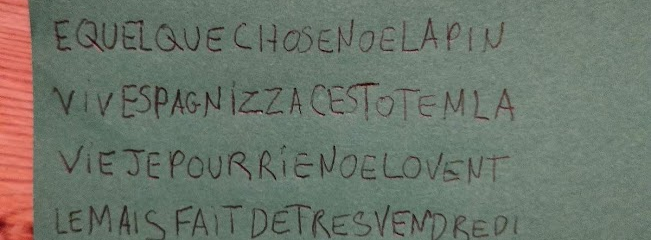 EQUELQUECHOSENOELAPIN
VIVESPAGNIZZACESTOTEMLA
VIEJEPOURRIENOELOVENT
LEMAISFAITDETRESVENDREDI